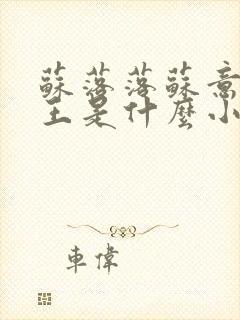 蘇落落蘇意
王是什麼小
車偉